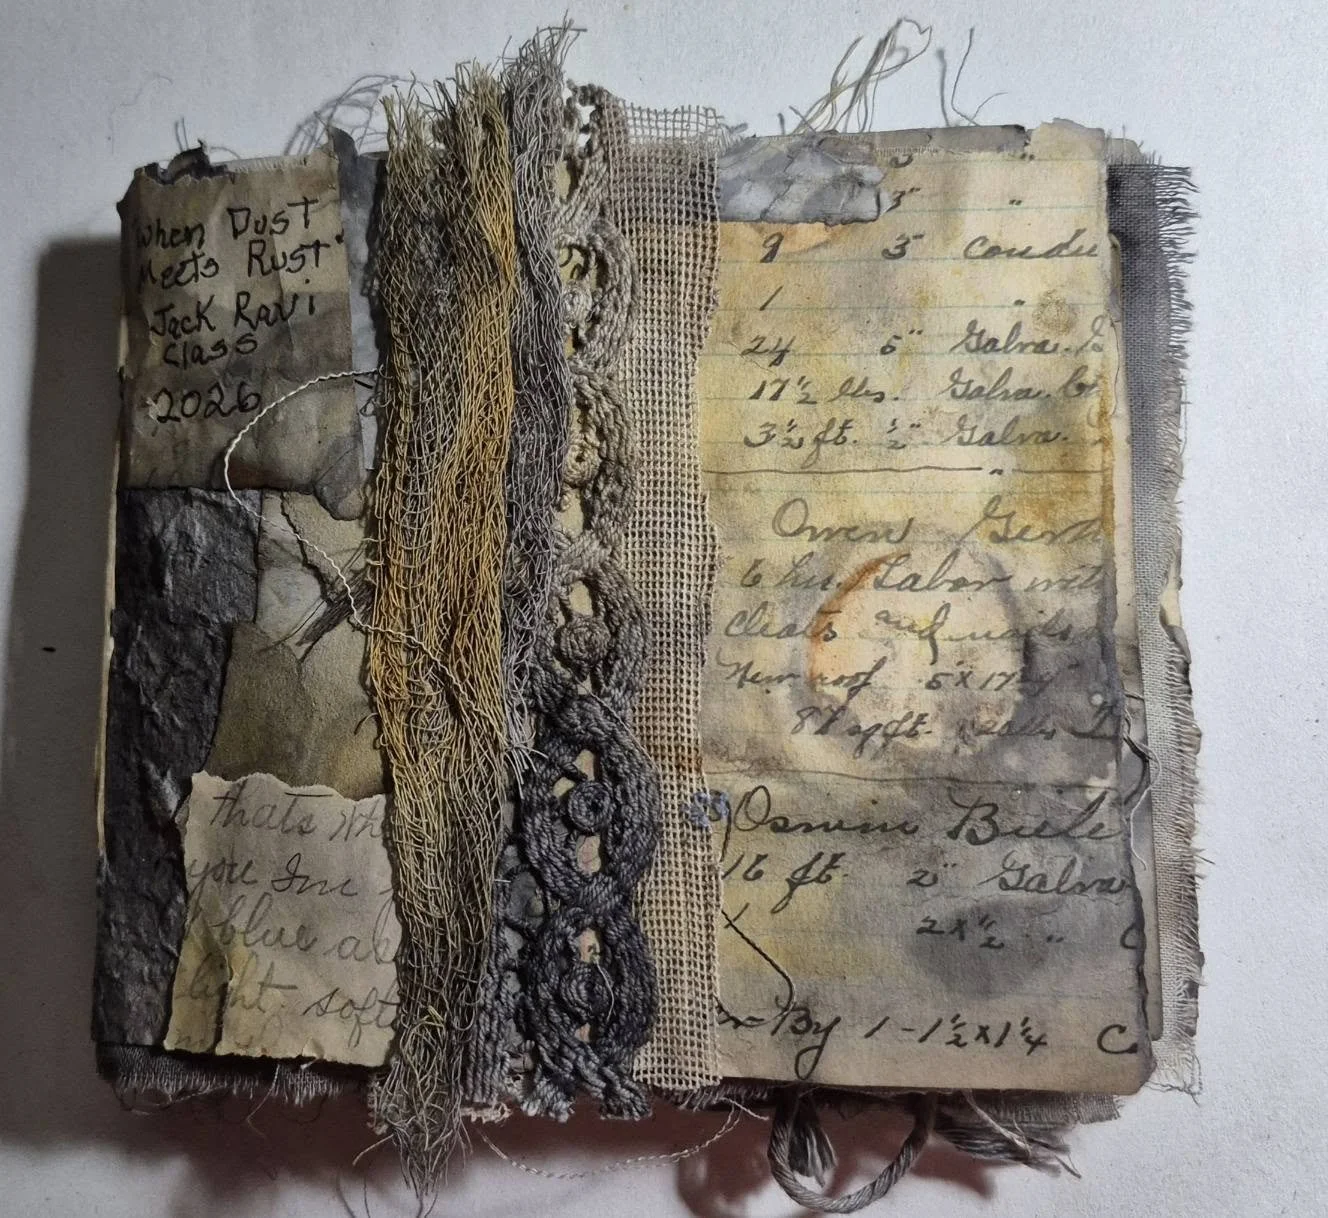 When Dust
Meets Rust"
Jack Ravi
Class
2026
thats wh
you Ime
blue
light soft
3 "
3" "
9 5" condu
1 "
24 5" Galva.
17 1/2 lbs. Galva.
3 1/2 ft. 1/2" Galva.
"
Owen
6 hr. Labor
cleats and nails
New roof 5 x 17
87 sq ft.
Oswin Biele
16 ft. 2" Galva
2 x 1/2 " C
By 1 - 1 1/2 x 1 1/4 C